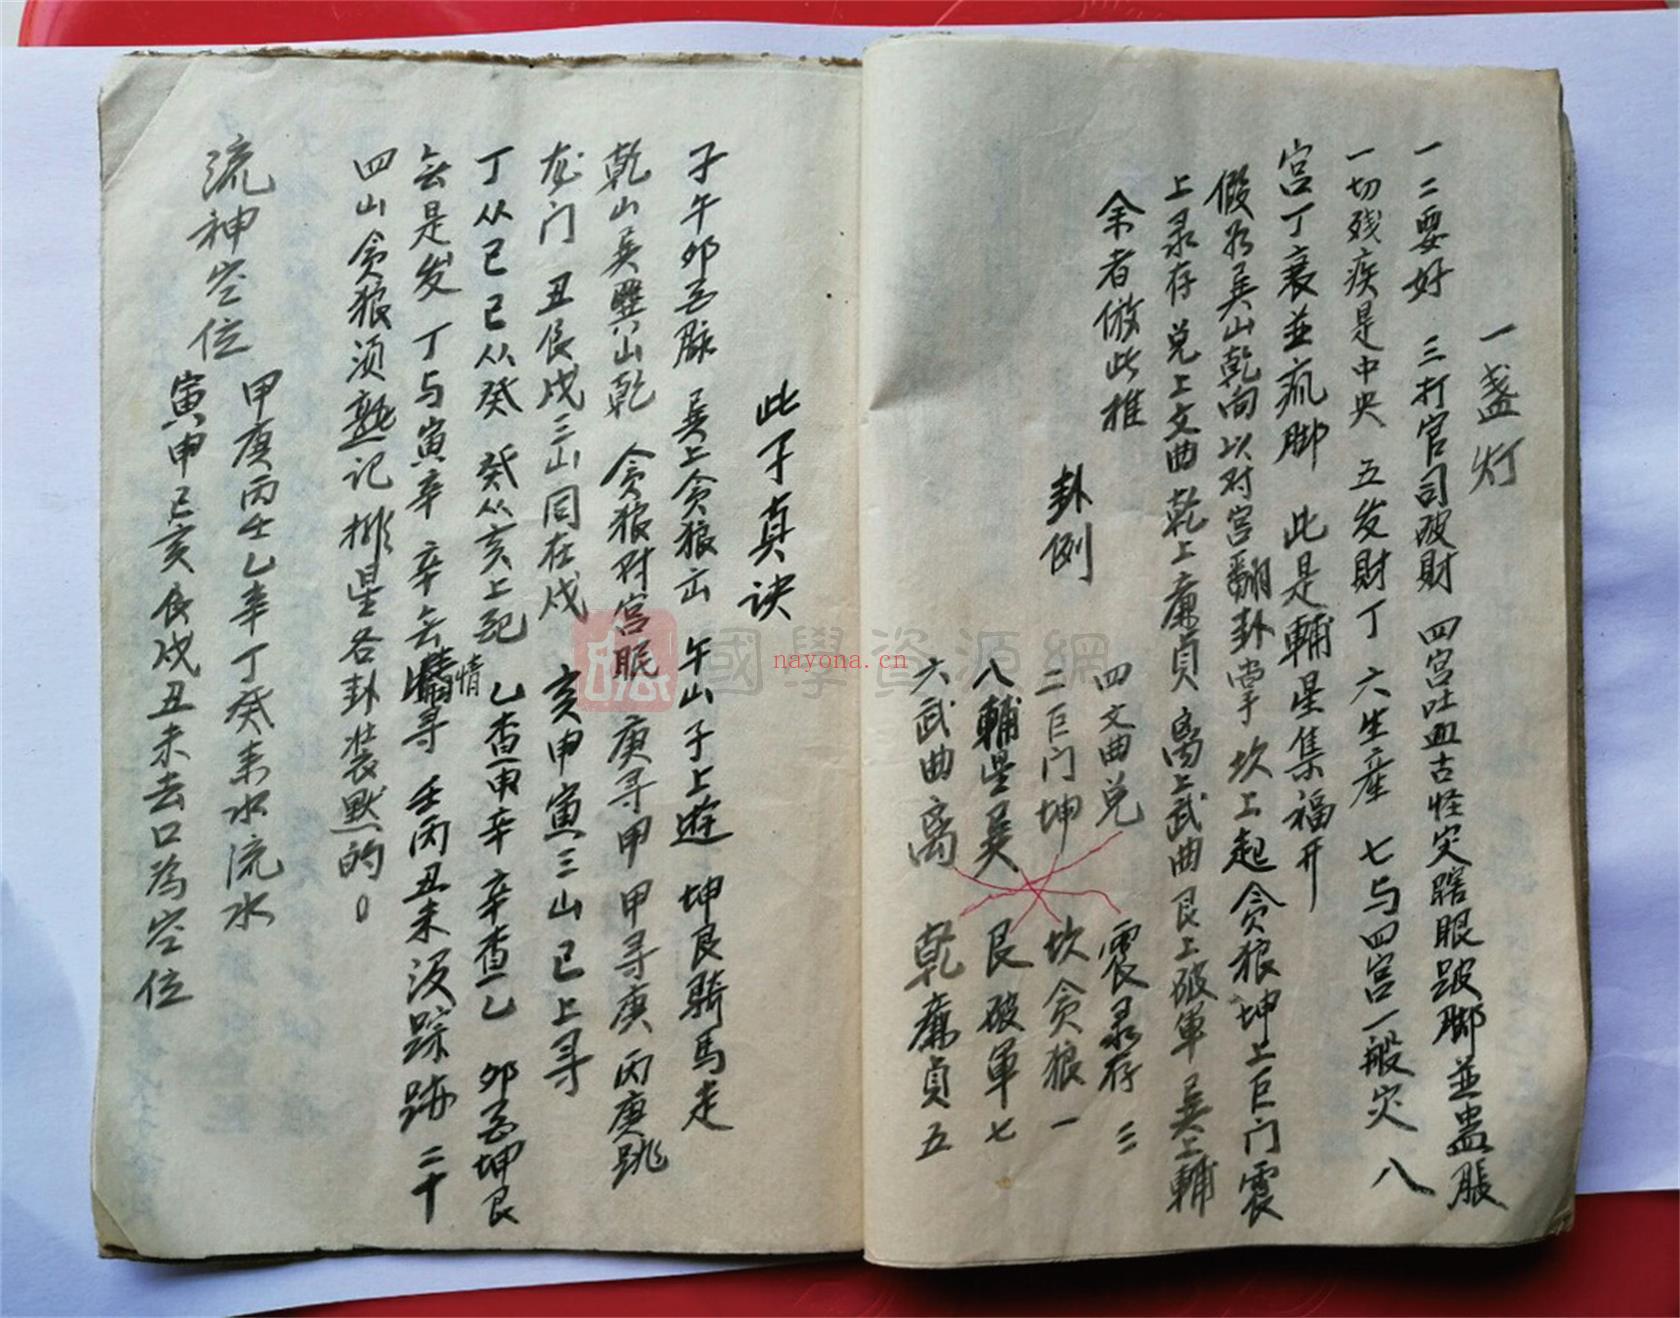 一盏灯
一二要好　三打官司破財　四宫吐血古怪灾瞎眼跛脚並蛊脹
一切残疾是中央　五发財丁　六生産　七与四宫一般灾　八
宫丁衰並疯脚　此是輔星集福开
假如巽山乾向以对宫翻卦掌坎上起贪狼坤上巨门震
上录存兑上文曲乾上廉貞离上武曲艮上破軍巽上輔
余者倣此推
卦例
四文曲兑　震录存三
二巨门坤　坎贪狼一
八輔星巽　艮破軍七
六武曲离　乾廉貞五
此子真诀
子午卯酉脉　巽上贪狼云　午山子上遊　坤艮騎馬走
乾山巽巽山乾　贪狼对宫眠　庚寻甲甲寻庚丙庚跳
龙门　丑艮戌三山同在戍　亥申寅三山已上寻
丁从已已从癸　癸从亥上起　乙查申辛辛查乙　卯酉坤艮
去是发　丁与寅辛　辛去寻　壬丙丑未没踪跡　二十
情
四山贪狼须熟记　排星各卦装默的。
流神空位
甲庚丙壬乙辛丁癸来水流水
寅申巳亥辰戌丑未去口為空位
國學資源網
nayona.cn